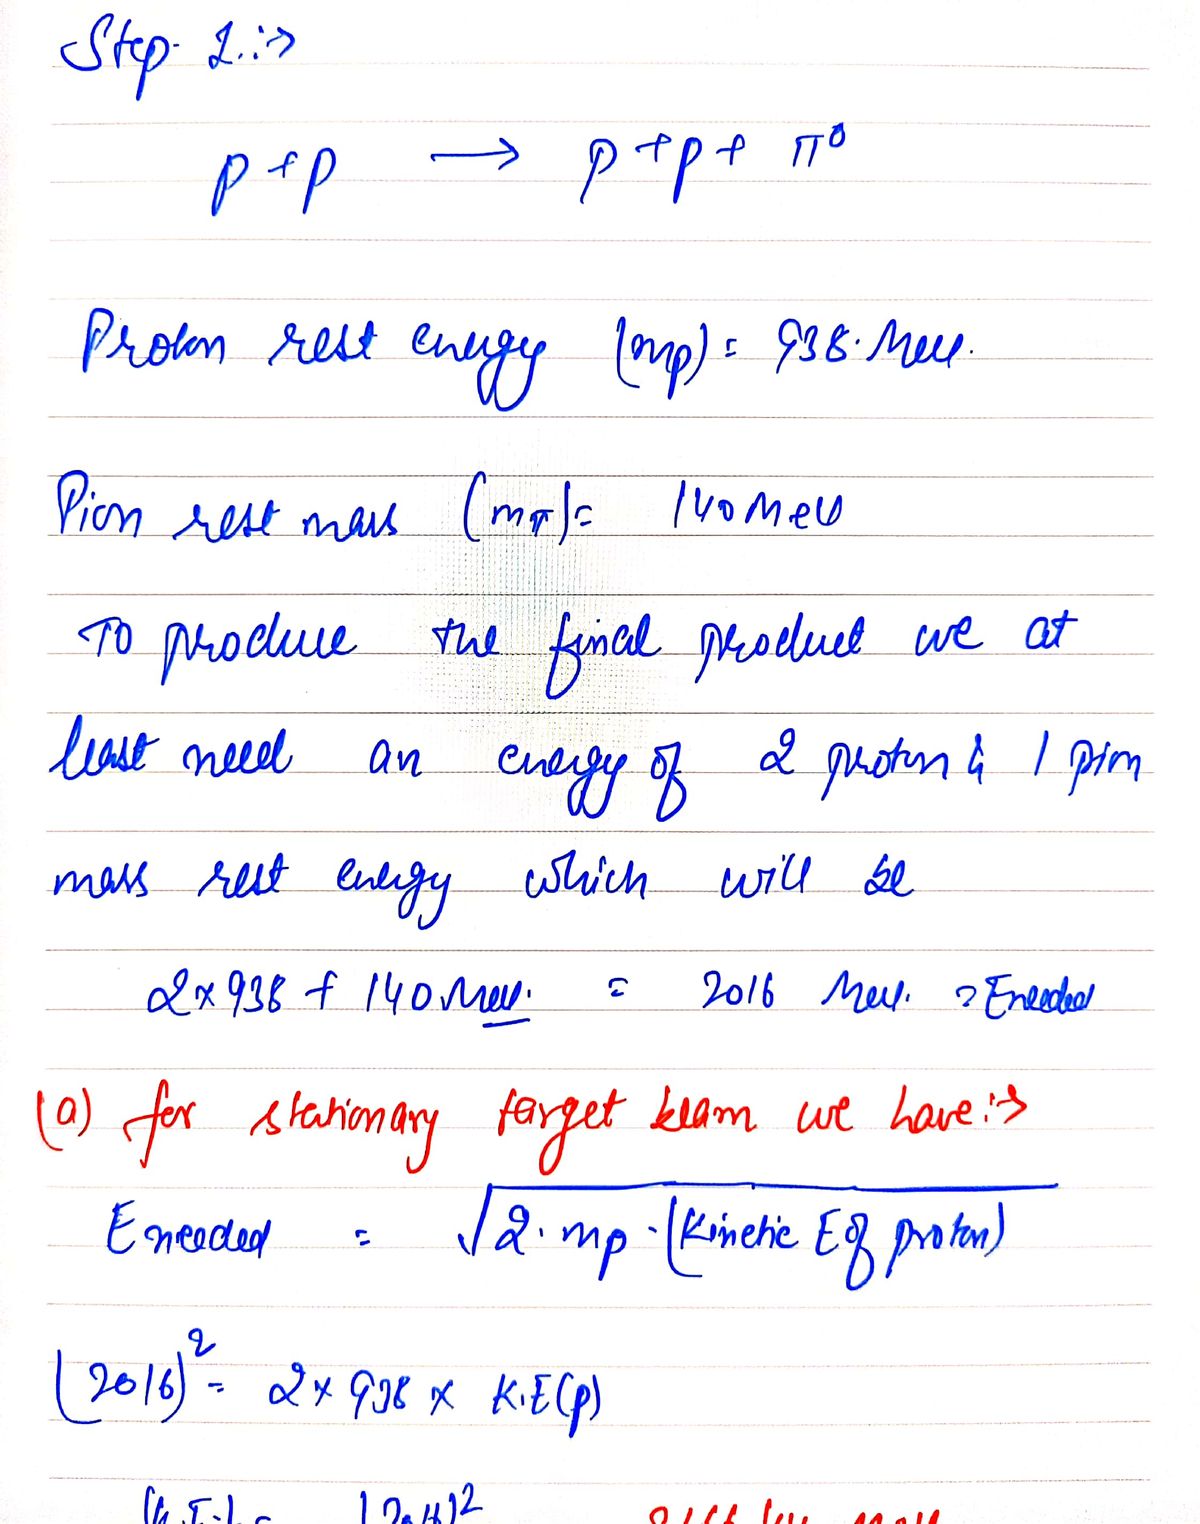 Step-2.:->
p+p → p+p+ π⁰
Proton rest energy (mp) = 938. Mev.
Pion rest mass (mπ) = 140 Mev
To produce the final product we at
least need an energy of 2 proton & 1 pion
mass rest energy which will be
2×938 + 140 Mev. = 2016 Mev. = Eneeded
(a) for stationary target beam we have:->
Eneeded = √2.mp.(Kinetic E of proton)
(2016)² = 2 × 938 × K.E(p)